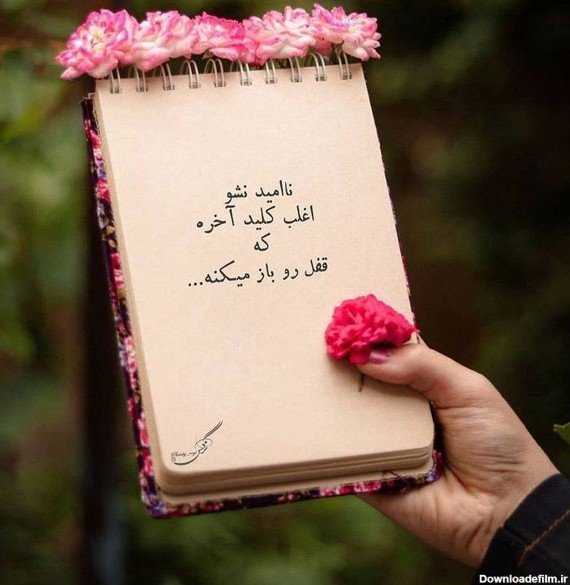 ناامید نشو
اغلب کلید آخره
که
قفل رو باز میکنه...
Downloadefilm.ir